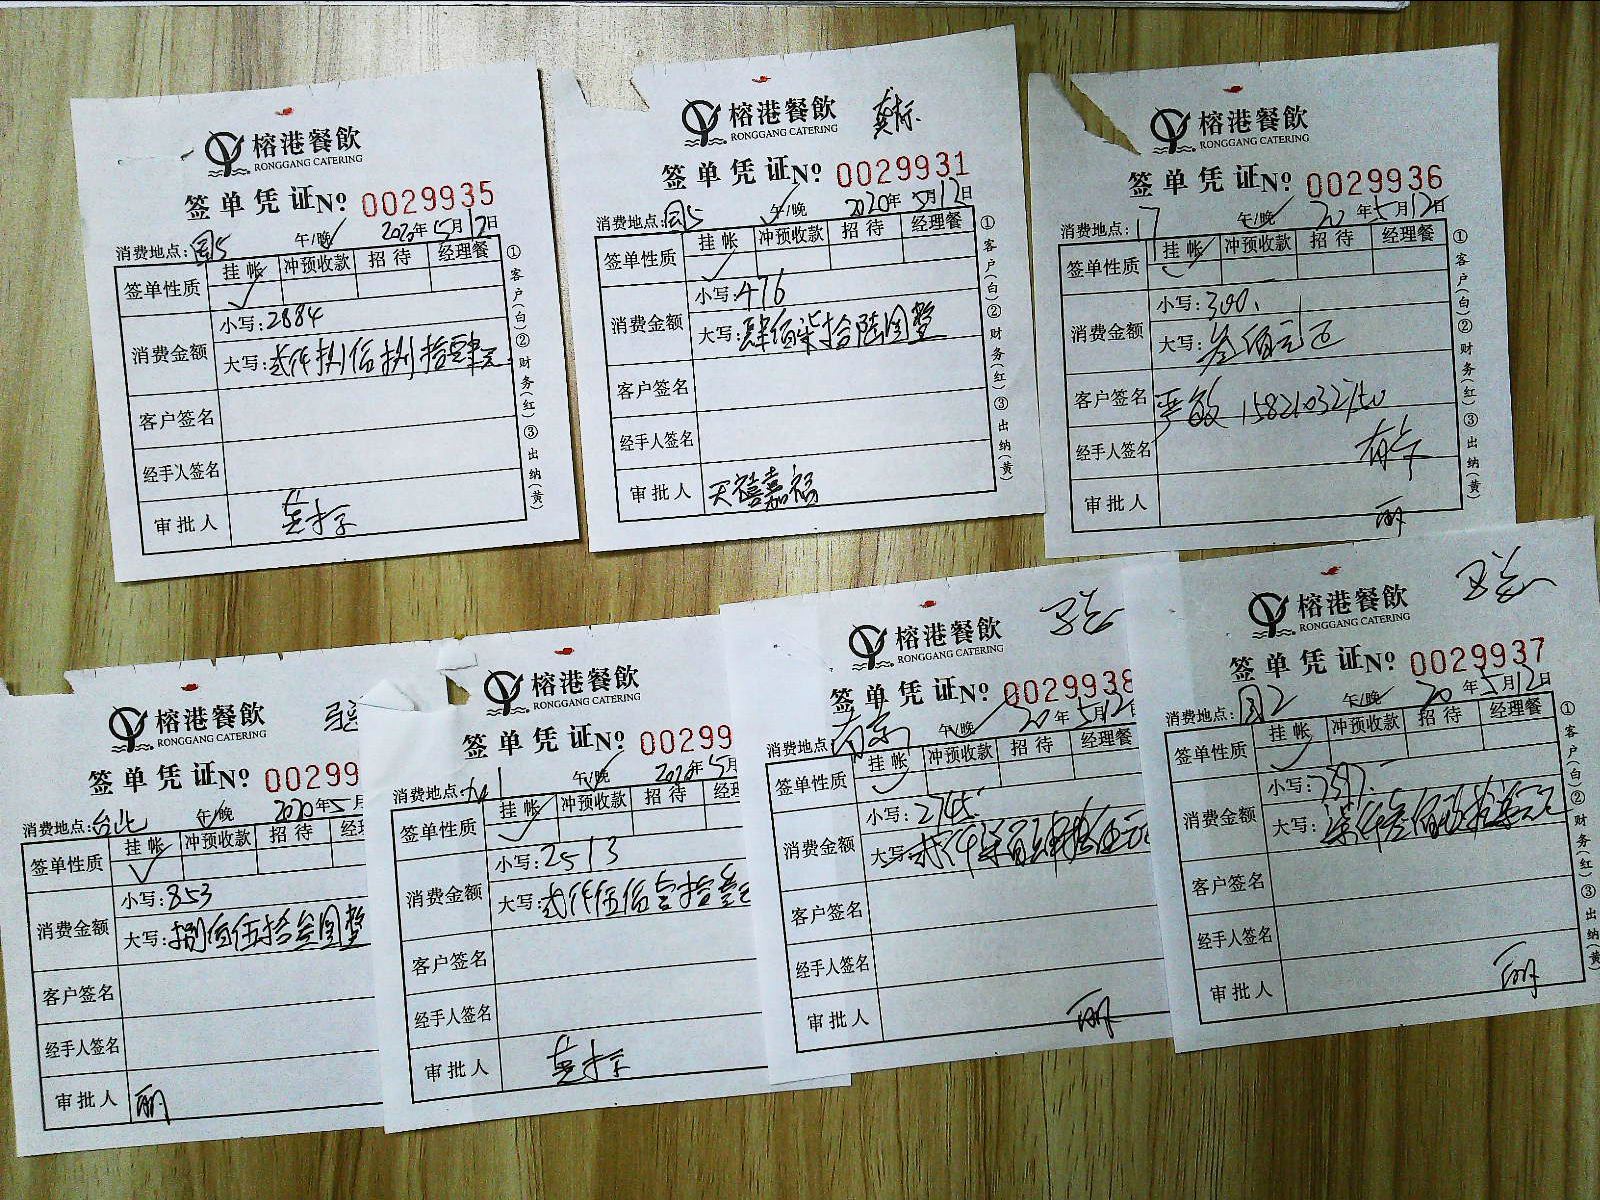 榕港餐飲
RONGGANG CATERING
签单凭证№ 0029935
消费地点: 园5 午/晚 2020年5月12日
签单性质 挂帐 冲预收款 招待 经理餐
消费金额 小写:2884
大写:贰仟捌佰捌拾肆元
客户签名
经手人签名
审批人
①客户(白)②财务(红)③出纳(黄)
榕港餐飲
RONGGANG CATERING
签单凭证№ 0029931
消费地点: 园5 午/晚 2020年5月12日
签单性质 挂帐 冲预收款 招待 经理餐
消费金额 小写:476
大写:肆佰柒拾陆圆整
客户签名
经手人签名
审批人 天禧嘉福
①客户(白)②财务(红)③出纳(黄)
榕港餐飲
RONGGANG CATERING
签单凭证№ 0029936
消费地点: 17 午/晚 20年5月12日
签单性质 挂帐 冲预收款 招待 经理餐
消费金额 小写:300.
大写:叁佰元正
客户签名 严敏
经手人签名
审批人 丽
①客户(白)②财务(红)③出纳(黄)
榕港餐飲
RONGGANG CATERING
签单凭证№ 00299
消费地点: 台北 午/晚 2020年5月
签单性质 挂帐 冲预收款
消费金额 小写:853
大写:捌佰伍拾叁圆整
客户签名
经手人签名
审批人 丽
榕港餐飲
RONGGANG CATERING
签单凭证№ 00299
消费地点: 午/晚 2020年5月
签单性质 挂帐 冲预收款 招待
消费金额 小写:2513
大写:贰仟伍佰壹拾叁元
客户签名
经手人签名
审批人
榕港餐飲
RONGGANG CATERING
签单凭证№ 0029938
消费地点: 南京 午/晚 20年5月12日
签单性质 挂帐 冲预收款 招待 经理餐
消费金额 小写:2745
大写:贰仟柒佰肆拾伍元
客户签名
经手人签名
审批人 丽
榕港餐飲
RONGGANG CATERING
签单凭证№ 0029937
消费地点: 园2 午/晚 20年5月12日
签单性质 挂帐 冲预收款 招待 经理餐
消费金额 小写:
大写:
客户签名
经手人签名
审批人 丽
①客户(白)②财务(红)③出纳(黄)